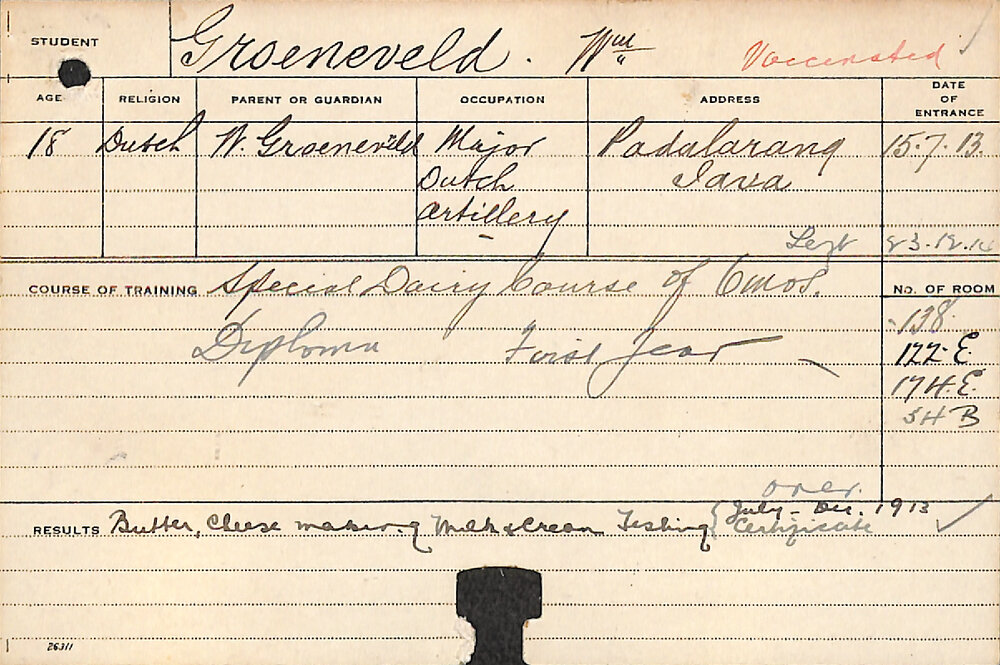 STUDENT Groeneveld. Wm Vaccinated
AGE RELIGION PARENT OR GUARDIAN OCCUPATION ADDRESS DATE OF ENTRANCE
18 Dutch W. Groeneveld Major Padalarang 15.7.13.
Dutch Java
Artillery
Left 23.12.14
COURSE OF TRAINING Special Dairy Course of 6mos. No. OF ROOM
138
Diploma First Year 122 E.
174 E.
54 B
over.
RESULTS Butter, Cheese making Milk & Cream Testing { July - Dec. 1913
Certificate
26311